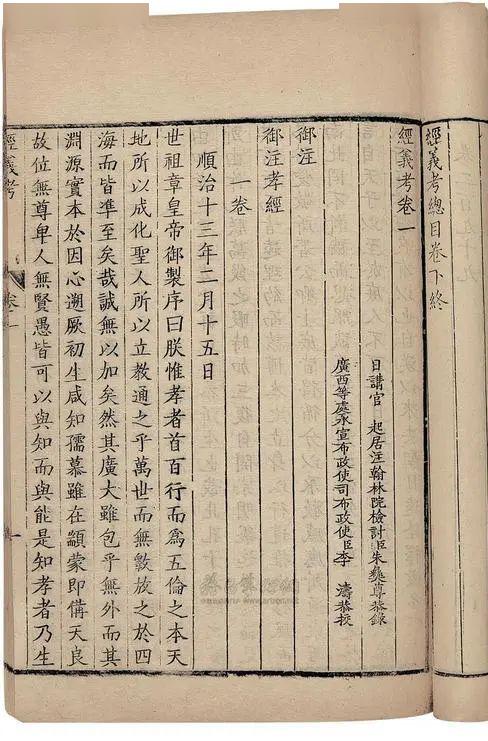 經義考總目卷下終
經義考卷一
日講官起居注翰林院檢討臣朱彝尊恭錄
廣西等處承宣布政使司布政使臣李濤恭校
御注
御注孝經
一卷
順治十三年二月十五日
世祖章皇帝御製序曰朕惟孝者首百行而爲五倫之本天
地所以成化聖人所以立教通之乎萬世而無斁放之於四
海而皆準至矣哉誠無以加矣然其廣大雖包乎無外而其
淵源實本於因心遡厥初生咸知孺慕雖在顓蒙即備天良
故位無尊卑人無賢愚皆可以與知而與能是知孝者乃生
經義考
卷一
一